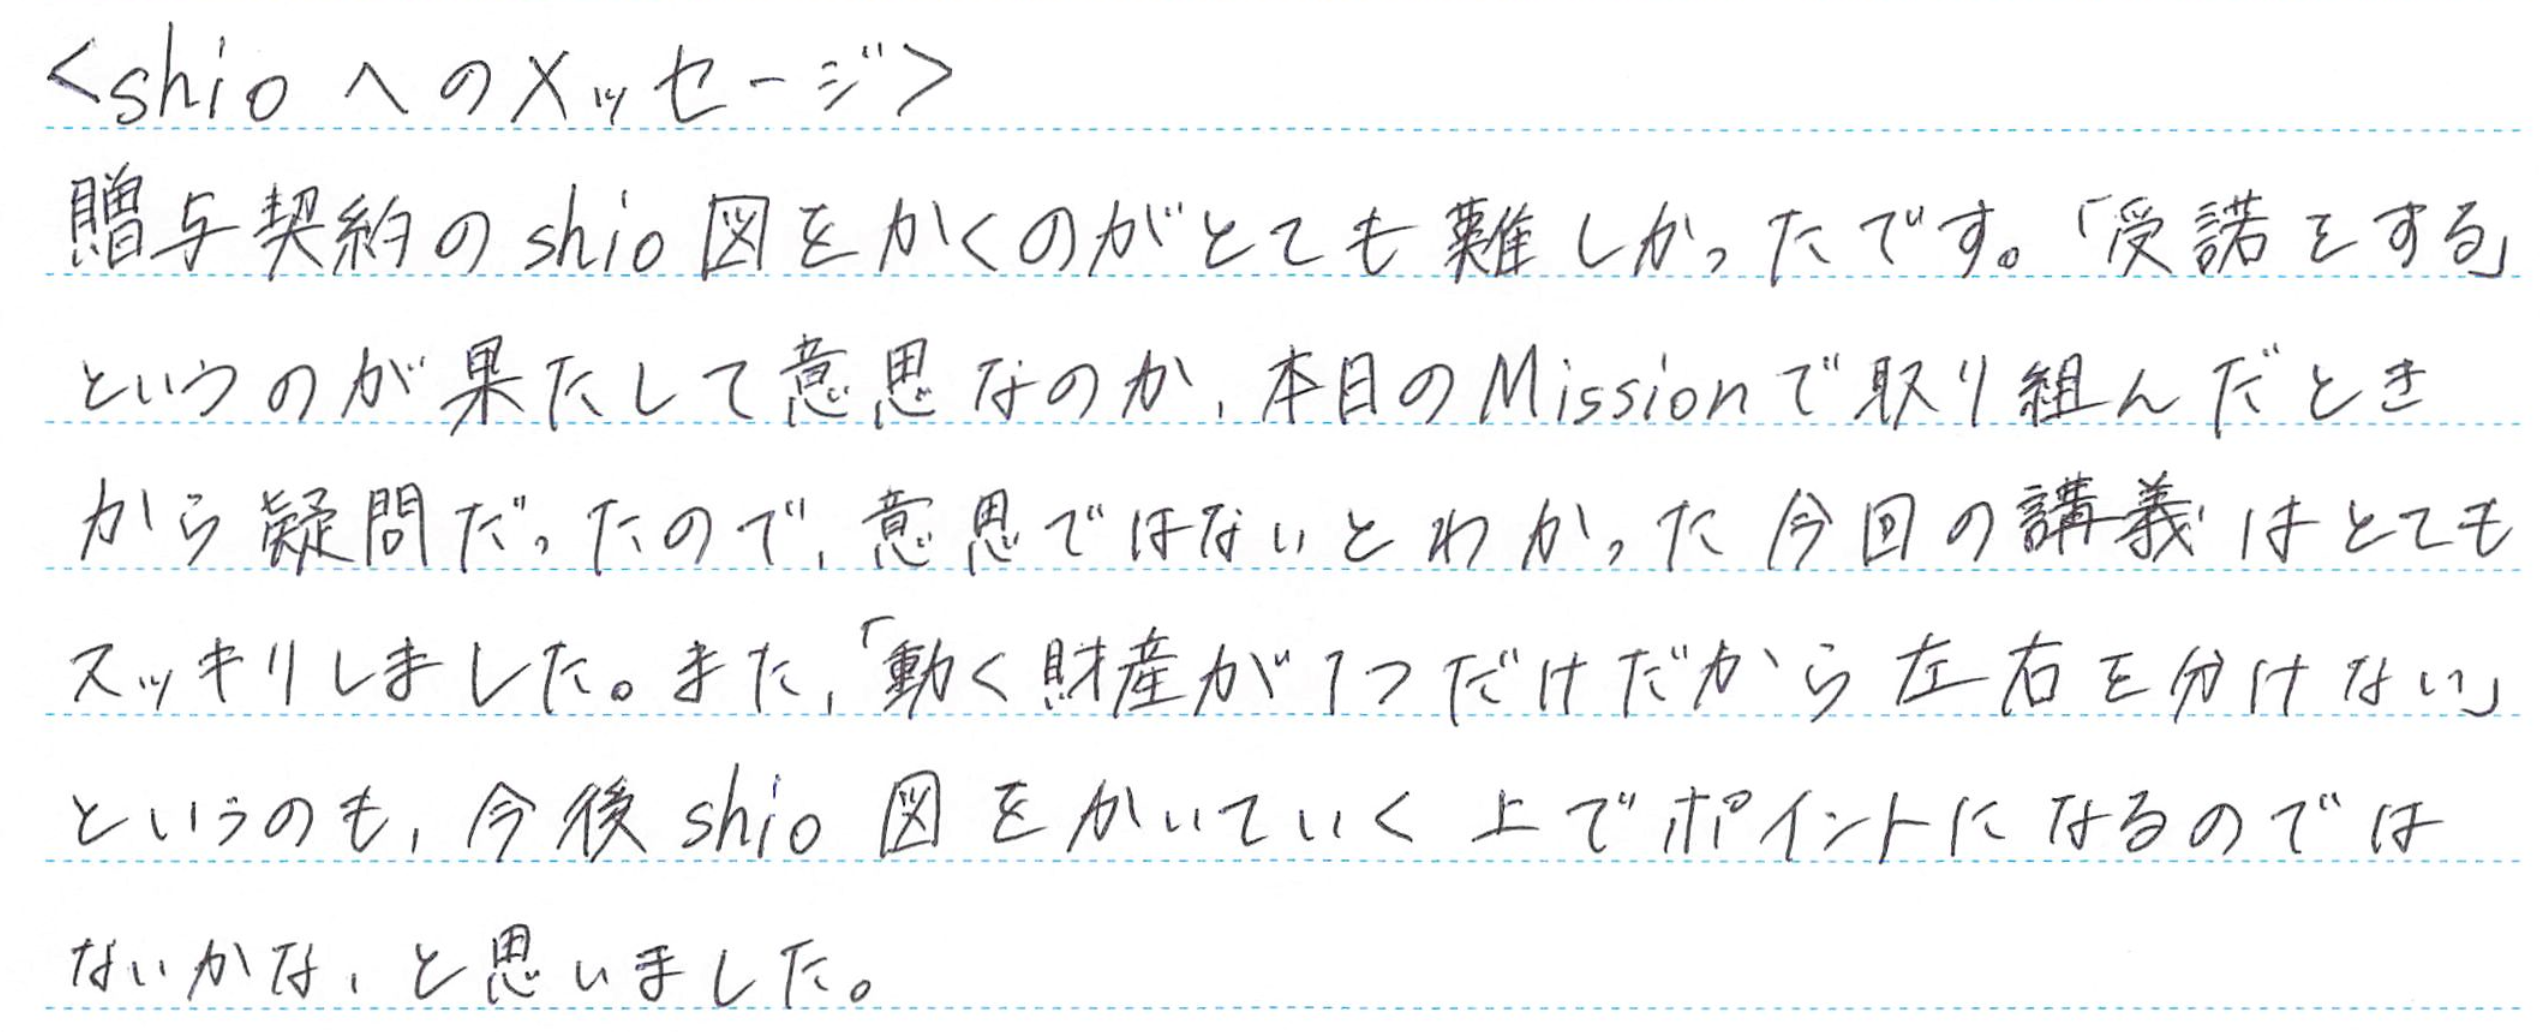 <shioへのメッセージ>
贈与契約のshio図をかくのがとても難しかったです。「受諾をする」
というのが果たして意思なのか、本日のMissionで取り組んだとき
から疑問だったので、意思ではないとわかった今回の講義はとても
スッキリしました。また、「動く財産が1つだけだから左右を分けない」
というのも、今後shio図をかいていく上でポイントになるのでは
ないかな、と思いました。